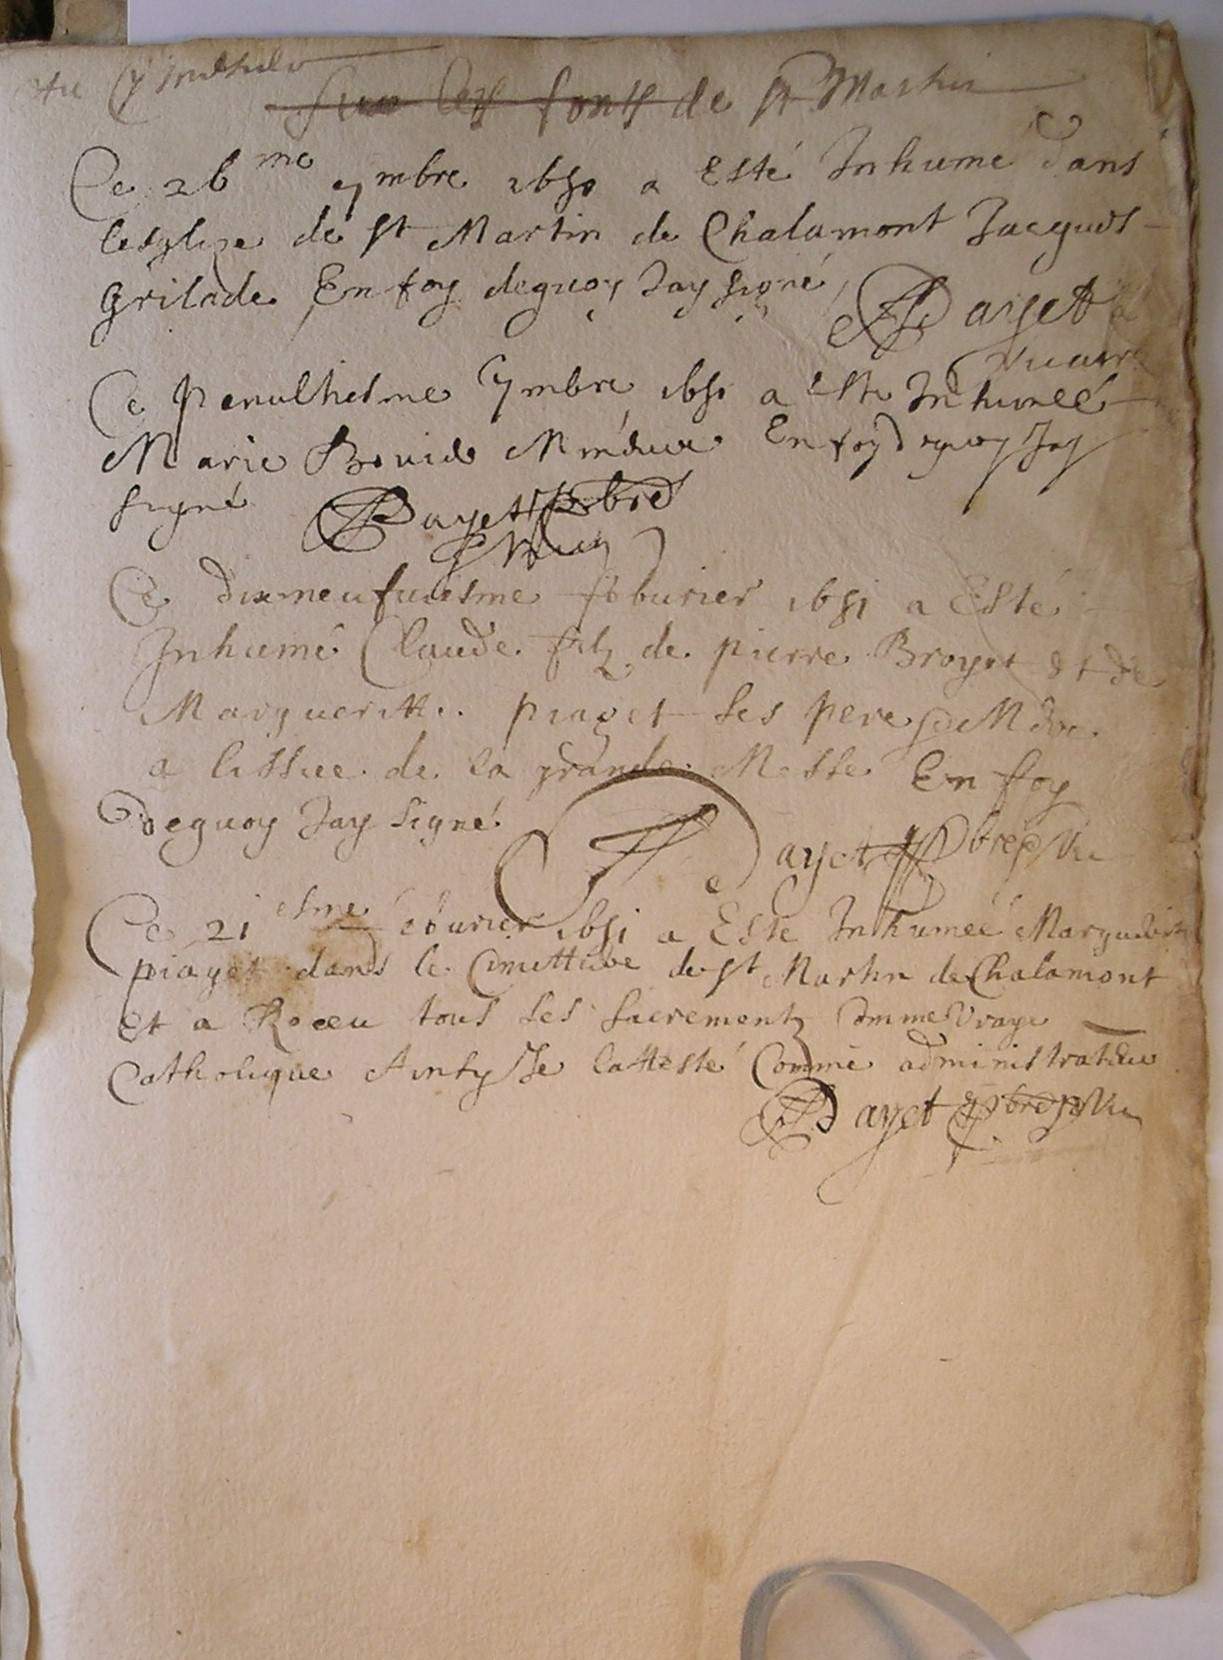 sur les fonts de st Martin
Ce 26me 7mbre 1650 a Esté Inhumé dans
lesglize de st Martin de Chalamont Jacques
Grilade, En foy dequoy Jay signé, Payet
vicaire
Ce penulthesme 7mbre 1650 a esté Inhumeé
Marie Bouide En foy dequoy Jay
signé Payet pbre
Vic
Ce dixneufuiesme feburier 1651 a Esté
Inhumé Claude filz de pierre Broyet et de
Margueritte piaget ses pere
a lissue de la grande Messe En foy
dequoy Jay signé Payet pbre Vic
Ce 21esme feburier 1651 a Este Inhumeé Marguerite
piaget dans le Cimittiere de st Martin de Chalamont
et a Receu tous les sacrementz Comme Vraye
Catholique Ainsy Je latteste Comme administrateur
Payet pbre Vic